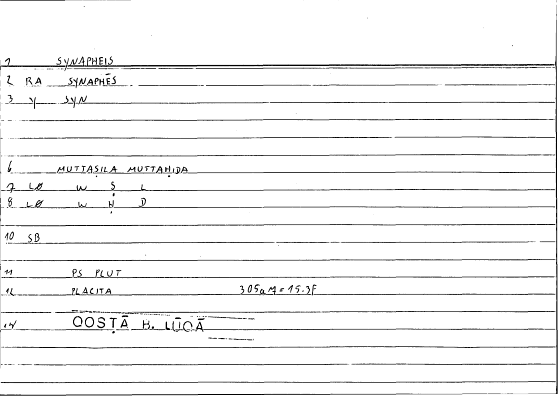 1 SYNAPHEIS
2 RA SYNAPHĒS
3 Y SYN
6 MUTTAṢILA MUTTAḤIDA
7 LØ W Ṣ L
8 LØ W Ḥ D
10 SB
11 PS PLUT
12 PLACITA 305a7=15.3F
14 QOSṬĀ B. LŪQĀ